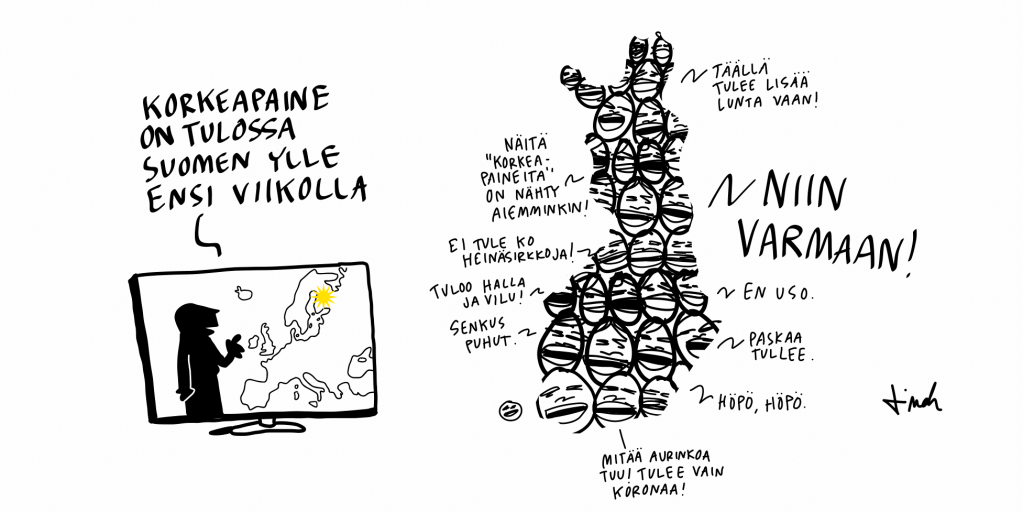 KORKEAPAINE
ON TULOSSA
SUOMEN YLLE
ENSI VIIKOLLA
TÄÄLLÄ
TULEE LISÄÄ
LUNTA VAAN!
NÄITÄ
"KORKEA-
PAINEITA"
ON NÄHTY
AIEMMINKIN!
NIIN
VARMAAN!
EI TULE KO
HEINÄSIRKKOJA!
TULOO HALLA
JA VILU!
EN USO.
SENKUS
PUHUT.
PASKAA
TULLEE.
HÖPÖ, HÖPÖ.
MITÄÄ AURINKOA
TUU! TULEE VAIN
KORONAA!